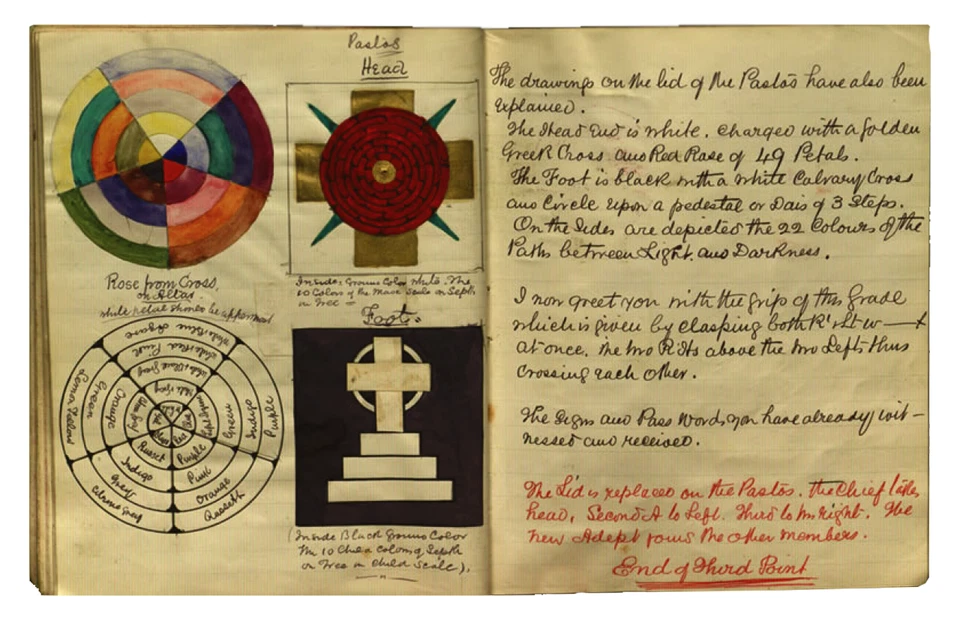 Pastos
Head
Rose from Cross,
on Altar.
white petal should be uppermost
Inside: Ground Color white. The
10 Colors of the Scale in Seph
on Tree =
Foot:
White Blue
White Red Pink
Green
Orange
Lemon Yellow
Green
Indigo
Purple
Russet
Purple
Indigo
Pink
Grey
Orange
Citrine Grey
Russett
(Inside Black Ground Color
The 10 Child Colors of Seph
on Tree in Child Scale).
The drawings on the lid of the Pastos have also been
explained.
The Head End is white. Charged with a Golden
Greek Cross and Red Rose of 49 Petals.
The Foot is black with a white Calvary Cross
and Circle upon a pedestal or Dais of 3 Steps.
On the Sides are depicted the 22 Colours of the
Paths between Light and Darkness.
I now greet you with the grip of this Grade
which is given by clasping both
at once. The two Rits above the two Lefts thus
crossing each other.
The Signs and Pass Words you have already wit-
nessed and received.
The Lid is replaced on the Pastos. the Chief takes
head, Second A to Left. Third to the Right. The
new Adept joins the other members.
End of Third Point